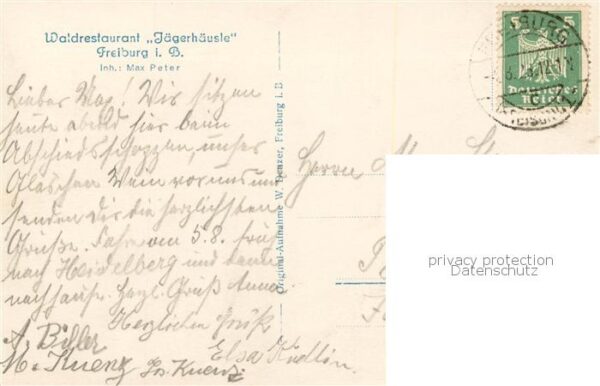 Waldrestaurant „Jägerhäusle"
Freiburg i. B.
Inh.: Max Peter
Lieber Max! Wir sitzen
heute abend hier beim
Abschiedsschoppen, unser
Gläschen Wein vor uns und
senden Dir die herzlichsten
Grüße. Fahre am 5.8. früh
nach Heidelberg und dann
nachhause. Herzl. Gruß Anna.
Herzlichen Gruß
Elsa
A. Biller
M. Kuenz Jos. Kuenz
Original-Aufnahme W. Benzer, Freiburg i. B
Herrn
5 5
Deutsches
Reich
FREIBURG
(BREISGAU)
privacy protection
Datenschutz